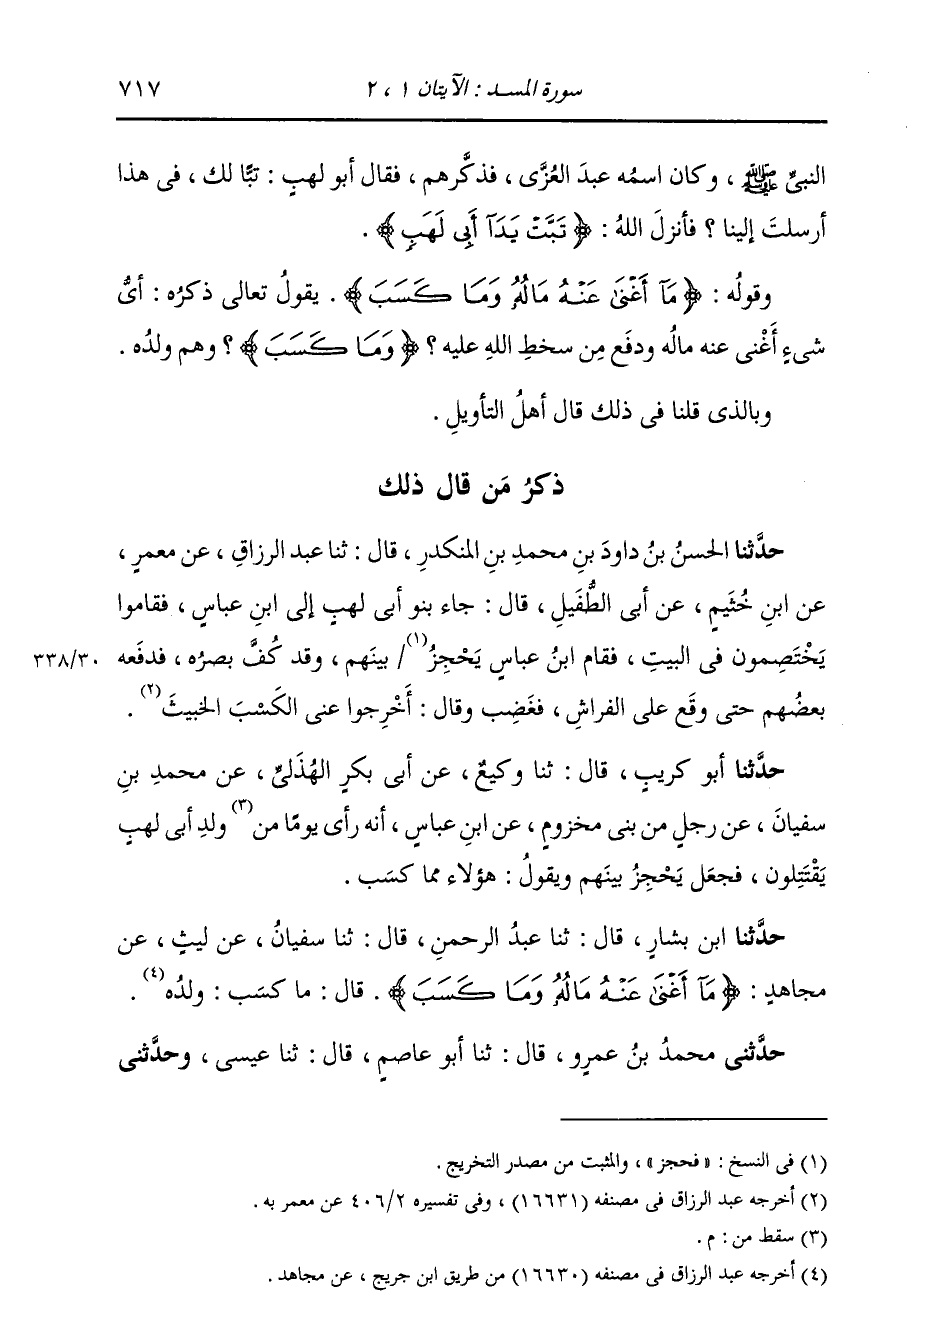 سورة المسد : الآيتان ١ ، ٢ ٧١٧
النبىِّ ﷺ ، وكان اسمُه عبدَ العُزَّى ، فذكَّرهم ، فقال أبو لهبٍ : تبًّا لك ، فى هذا
أرسلتَ إلينا ؟ فأنزلَ اللهُ : ﴿ تَبَّتْ يَدَآ أَبِى لَهَبٍ ﴾ .
وقولُه : ﴿ مَآ أَغْنَىٰ عَنْهُ مَالُهُۥ وَمَا كَسَبَ ﴾ . يقولُ تعالى ذكرُه : أىُّ
شىءٍ أَغْنى عنه مالُه ودفَع مِن سخطِ اللهِ عليه ؟ ﴿ وَمَا كَسَبَ ﴾ ؟ وهم ولدُه .
وبالذى قلنا فى ذلك قال أهلُ التأويلِ .
ذكرُ مَن قال ذلك
حدَّثنا الحسنُ بنُ داودَ بنِ محمدِ بنِ المنكدرِ ، قال : ثنا عبد الرزاقِ ، عن معمرٍ ،
عن ابنِ خُثَيمٍ ، عن أبى الطُّفَيلِ ، قال : جاء بنو أبى لهبٍ إلى ابنِ عباسٍ ، فقاموا
يَخْتَصِمون فى البيتِ ، فقام ابنُ عباسٍ يَحْجِزُ(١) / بينَهم ، وقد كُفَّ بصرُه ، فدفَعه ٣٣٨/٣٠
بعضُهم حتى وقَع على الفراشِ ، فغَضِب وقال : أَخْرِجوا عنى الكَسْبَ الخبيثَ(٢) .
حدَّثنا أبو كريبٍ ، قال : ثنا وكيعٌ ، عن أبى بكرٍ الهُذَلىِّ ، عن محمدِ بنِ
سفيانَ ، عن رجلٍ من بنى مخزومٍ ، عن ابنِ عباسٍ ، أنه رأى يومًا من(٣) ولدِ أبى لهبٍ
يَقْتَتِلون ، فجعَل يَحْجِزُ بينَهم ويقولُ : هؤلاء مما كسَب .
حدَّثنا ابن بشارٍ ، قال : ثنا عبدُ الرحمنِ ، قال : ثنا سفيانُ ، عن ليثٍ ، عن
مجاهدٍ : ﴿ مَآ أَغْنَىٰ عَنْهُ مَالُهُۥ وَمَا كَسَبَ ﴾ . قال : ما كسَب : ولدُه(٤) .
حدَّثنى محمدُ بنُ عمرٍو ، قال : ثنا أبو عاصمٍ ، قال : ثنا عيسى ، وحدَّثنى
(١) فى النسخ : « فحجز » ، والمثبت من مصدر التخريج .
(٢) أخرجه عبد الرزاق فى مصنفه (١٦٦٣١) ، وفى تفسيره ٤٠٦/٢ عن معمر به .
(٣) سقط من : م .
(٤) أخرجه عبد الرزاق فى مصنفه (١٦٦٣٠) من طريق ابن جريج ، عن مجاهد .